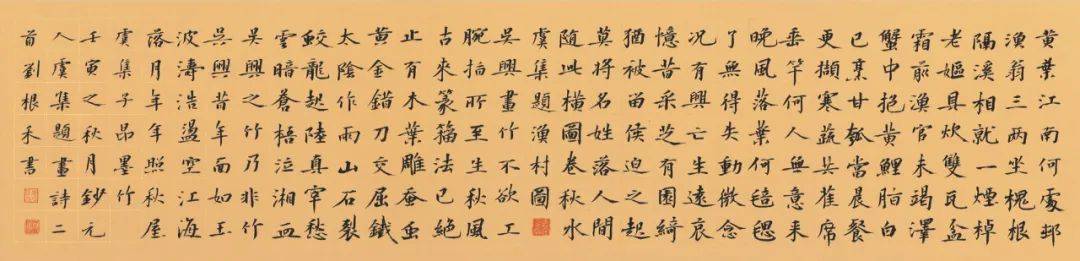 黄葉江南何處邨
漁翁三兩坐槐根
隔溪相就一煙棹
老嫗具炊雙瓦盆
霜前漁官未竭澤
蟹中抱黄鯉肪白
已烹甘瓠當晨餐
更擷寒蔬共萑席
垂竿何人無意来
晚風落葉何毰毸
了無得失動微念
况有興亡生遠哀
憶昔采芝有園綺
猶被留侯迫之起
莫將名姓落人間
隨此橫圖卷秋水
虞集題漁村圖
吳興畫竹不欲工
腕指所至生秋風
古來篆籀法已絶
止有木葉雕蚕虫
黄金錯刀交屈鐵
太陰作雨山石裂
蛟龍起陸真宰愁
雲暗蒼梧泣湘血
吳興之竹乃非竹
吳興昔年面如玉
波濤浩盪空江海
落月年年照秋屋
虞集子昂墨竹
壬寅之秋月鈔元
人虞集題畫詩二
首劉根禾書